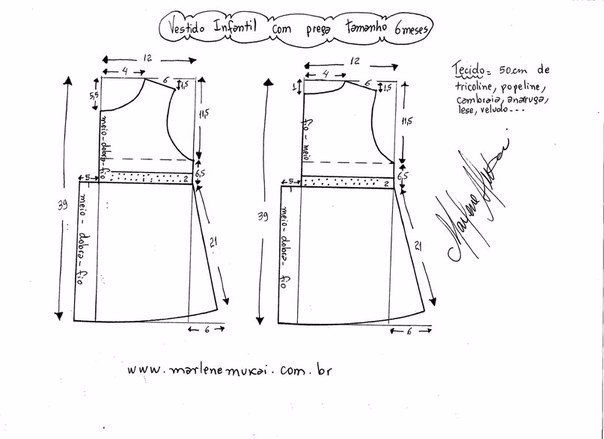 Vestido Infantil com prega tamanho 6 meses
12
4
6
1,5
5,5
11,5
meio-dobra-fio
6,5
2
5
39
meio-dobra-fio
21
6
12
4
6
1,5
1
11,5
fio-meio
6,5
2
5
39
meio-dobra-fio
21
6
Tecido= 50cm de
tricoline, popeline,
cambraia, anarruga,
lese, veludo...
Marlene Mukai
www.marlenemukai.com.br